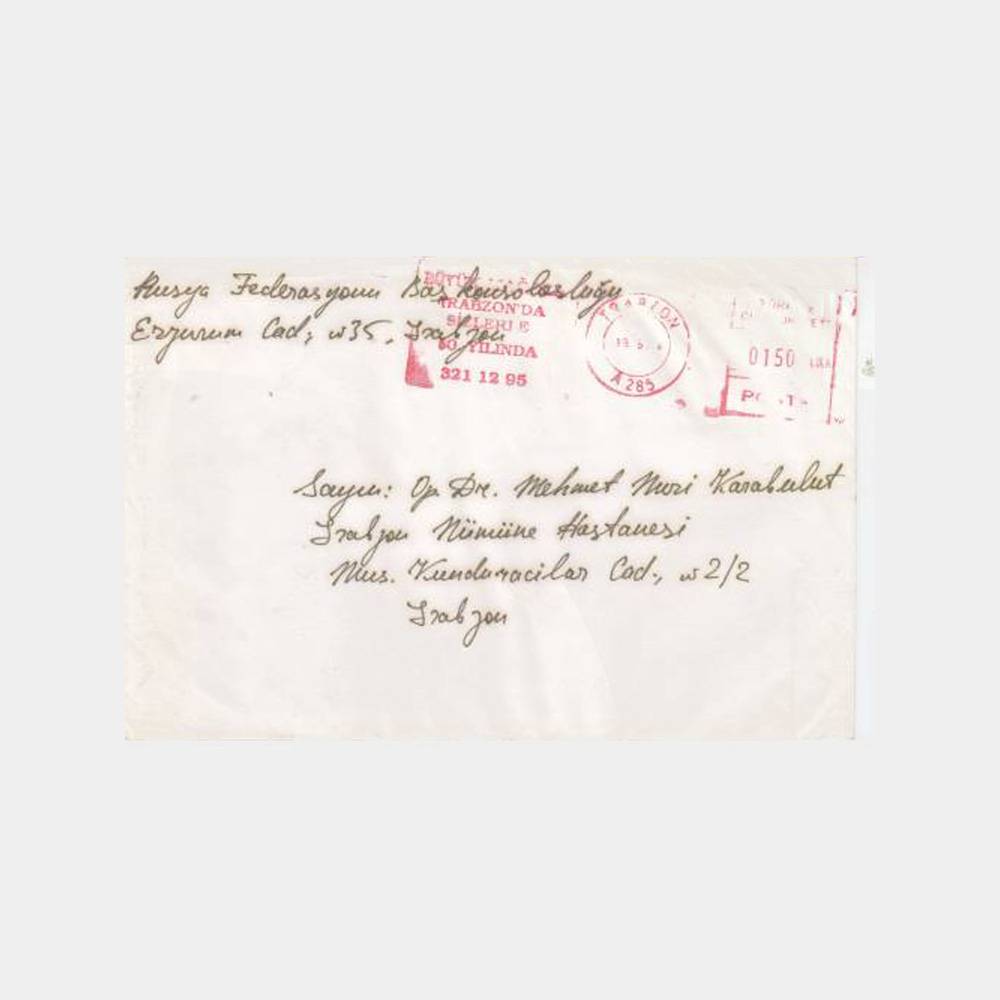 Rusya Federasyonu Baş konsolosluğu
Erzurum Cad., N35, Trabzon
TRABZON'DA
YILINDA
321 12 95
TRABZON
A 285
0150
Sayın: Op. Dr. Mehmet Nuri Karabulut
Trabzon Nümüne Hastanesi
Mus. Kunduracilar Cad., N2/2
Trabzon